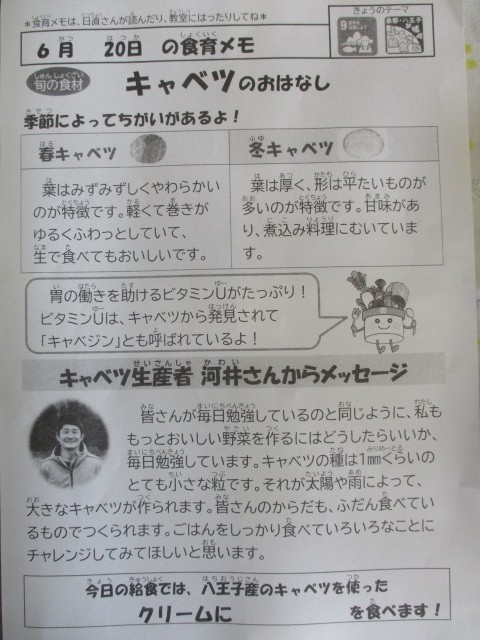 ＊食育メモは、日直さんが読んだり、教室にはったりしてね＊
きょうのテーマ
6月 20日 の食育メモ
旬の食材
キャベツのおはなし
季節によってちがいがあるよ！
春キャベツ
葉はみずみずしくやわらかい
のが特徴です。軽くて巻きが
ゆるくふわっとしていて、
生で食べてもおいしいです。
冬キャベツ
葉は厚く、形は平たいものが
多いのが特徴です。甘味があ
り、煮込み料理にむいていま
す。
胃の働きを助けるビタミンUがたっぷり！
ビタミンUは、キャベツから発見されて
「キャベジン」とも呼ばれているよ！
キャベツ生産者 河井さんからメッセージ
皆さんが毎日勉強しているのと同じように、私も
もっとおいしい野菜を作るにはどうしたらいいか、
毎日勉強しています。キャベツの種は1㎜くらいの
とても小さな粒です。それが太陽や雨によって、
大きなキャベツが作られます。皆さんのからだも、ふだん食べてい
るものでつくられます。ごはんをしっかり食べていろいろなことに
チャレンジしてみてほしいと思います。
今日の給食では、八王子産のキャベツを使った
クリームに を食べます！